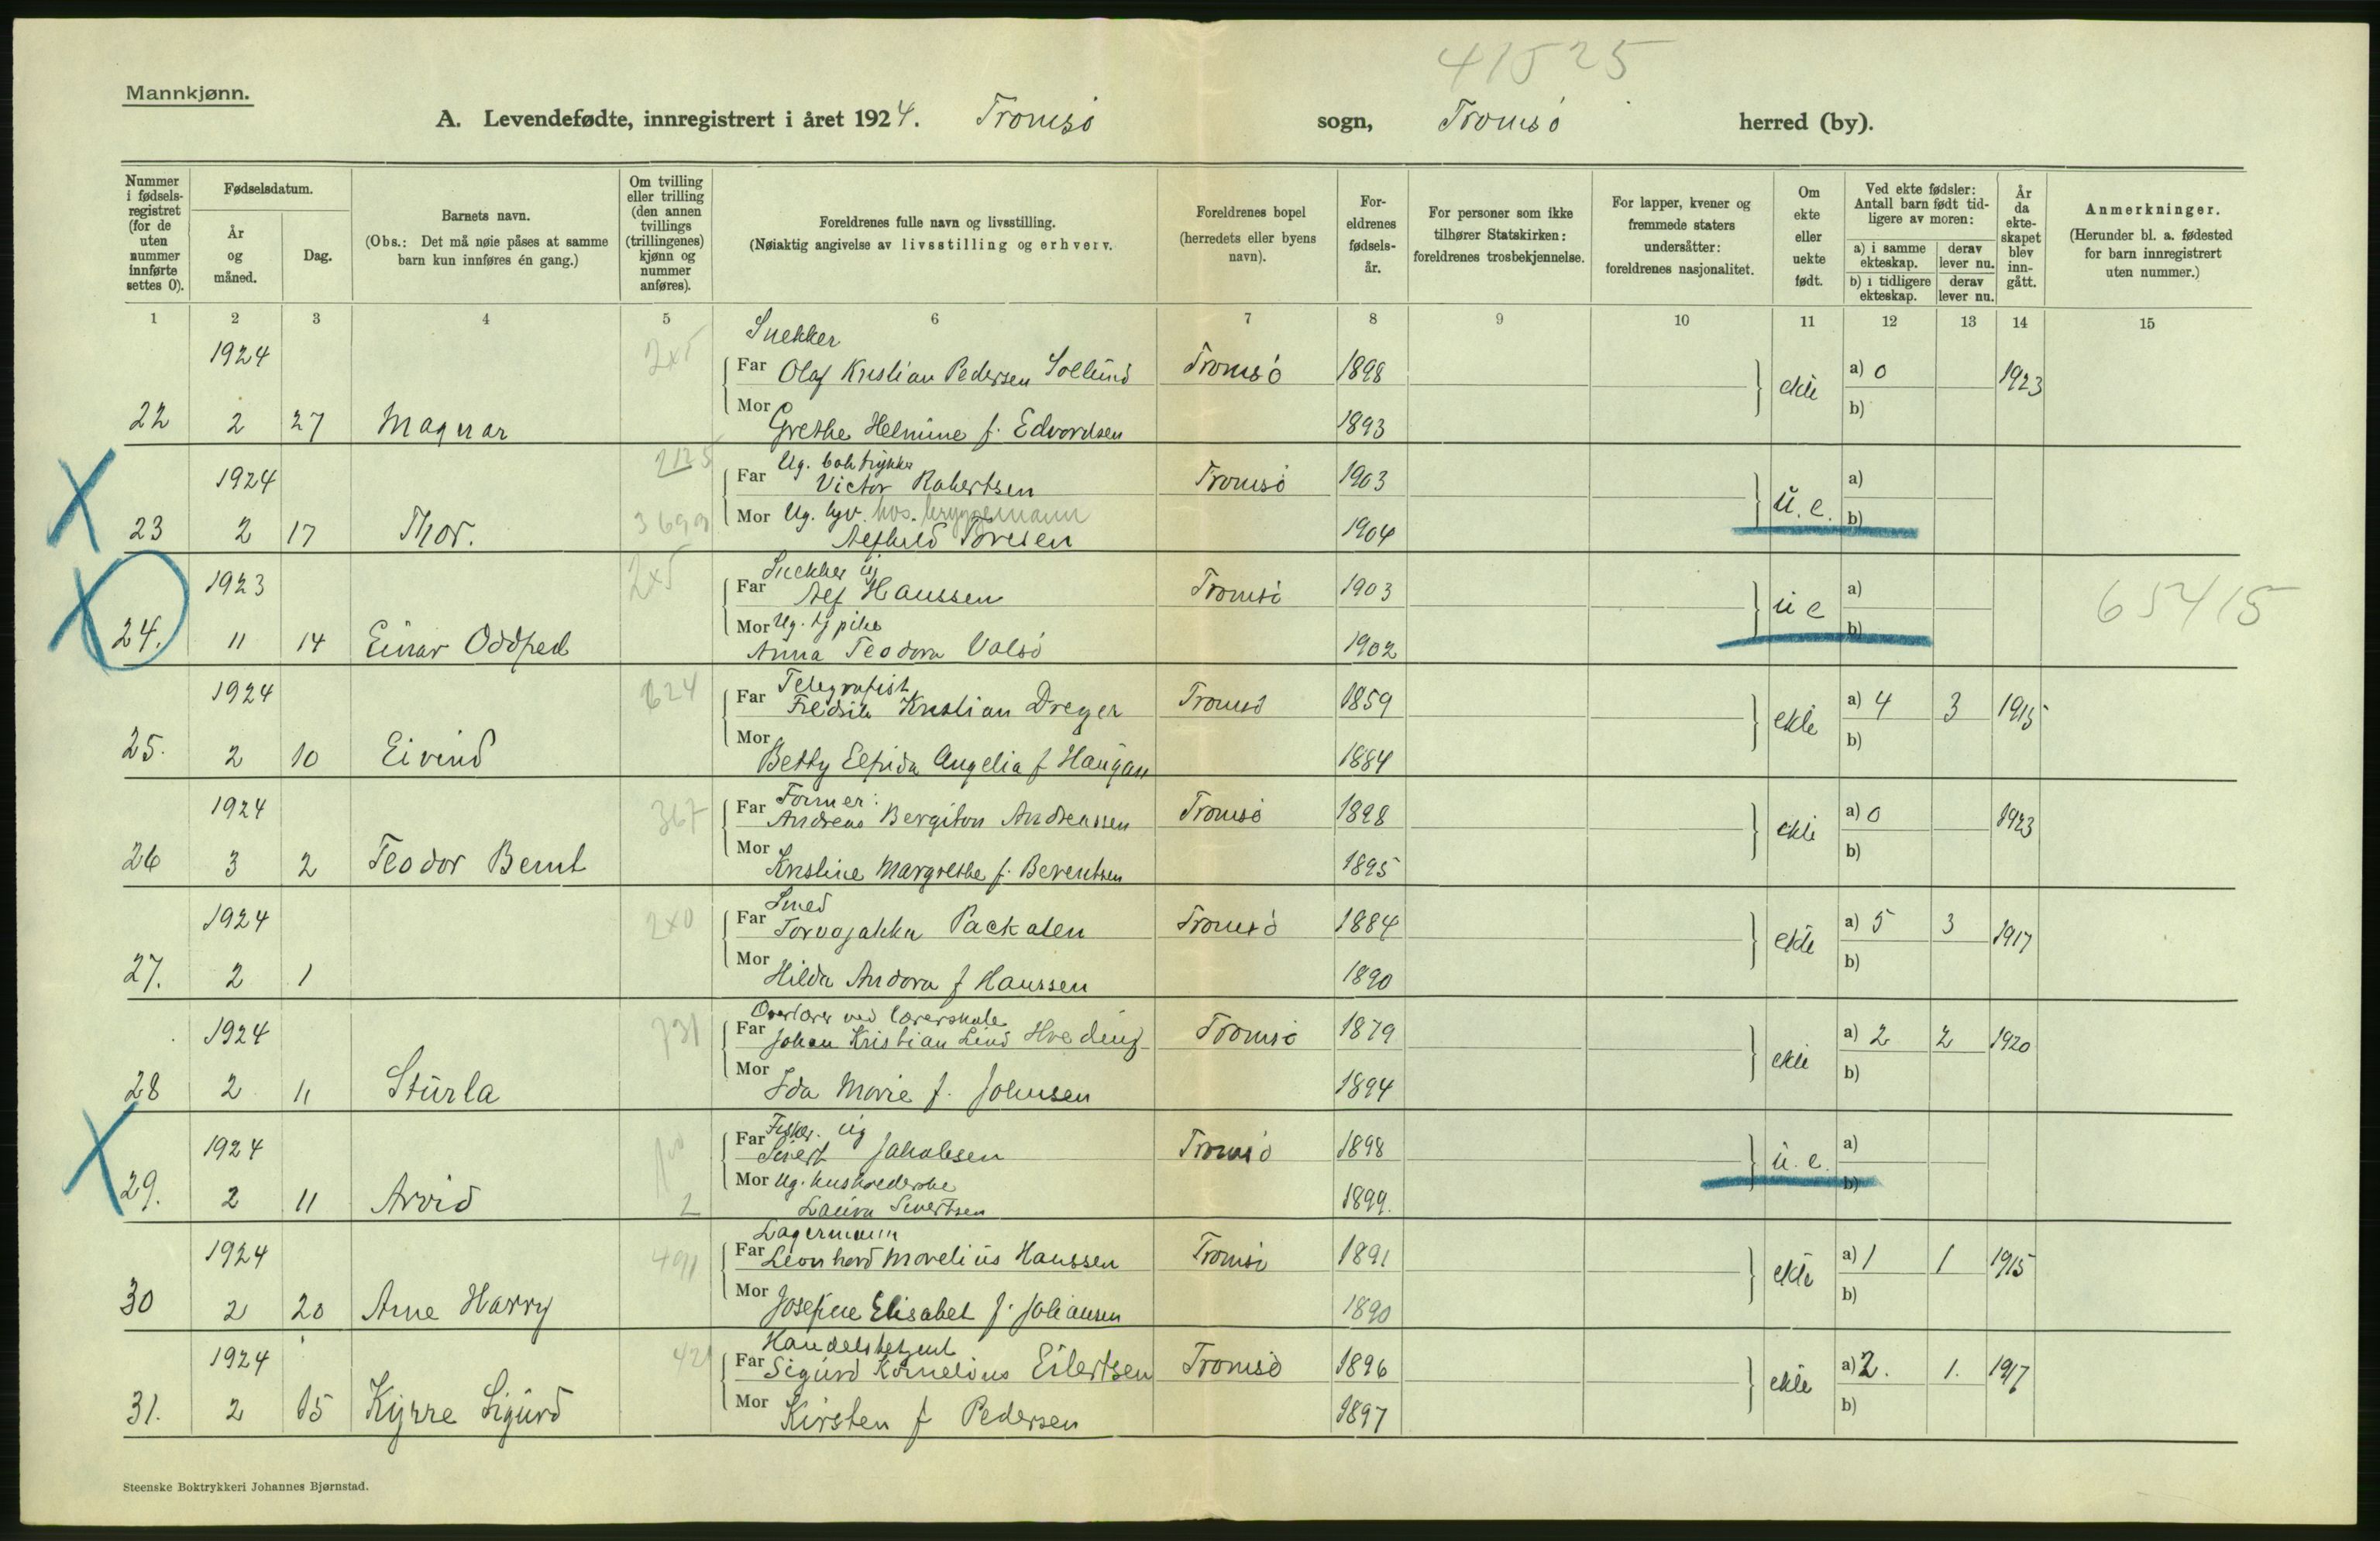 41525
Mannkjønn.
A. Levendefødte, innregistrert i året 1924. Tromsø sogn, Tromsø herred (by).
Nummer i fødsels-registret (for de uten nummer innførte settes 0).
Fødselsdatum.
År og måned.
Dag.
Barnets navn.
(Obs.: Det må nøie påses at samme barn kun innføres én gang.)
Om tvilling eller trilling (den annen tvillings (trillingenes) kjønn og nummer anføres).
Foreldrenes fulle navn og livsstilling.
(Nøiaktig angivelse av livsstilling og erhverv.
Foreldrenes bopel (herredets eller byens navn).
For-eldrenes fødsels-år.
For personer som ikke tilhører Statskirken: foreldrenes trosbekjennelse.
For lapper, kvener og fremmede staters undersåtter: foreldrenes nasjonalitet.
Om ekte eller uekte født.
Ved ekte fødsler: Antall barn født tidligere av moren:
a) i samme ekteskap. derav lever nu.
b) i tidligere ekteskap. derav lever nu.
År da ekte-skapet blev inn-gått.
Anmerkninger.
(Herunder bl. a. fødested for barn innregistrert uten nummer.)
1 2 3 4 5 6 7 8 9 10 11 12 13 14 15
Snekker
1924 2x5 Far Olaf Kristian Pedersen Sollund Tromsø 1898 ekte a) 0 1923
22 2 27 Magnar Mor Grethe Helmine f. Edvardsen 1893 b)
Ug. boktrykker
1924 Far Victor Robertsen Tromsø 1903 u.e. a)
Mor Ug. hos bryggemann
23 2 17 Thor. Alfhild Toresen 1904 b)
Snekker ug
1923 2x5 Far Alf Hanssen Tromsø 1903 u e a) 65415
Mor Ug. tj pike
24. 11 14 Einar Oddfred Anna Teodora Valsø 1902 b)
Telegrafist
1924 624 Far Fredrik Kristian Dreyer Tromsø 1859 ekte a) 4 3 1915
25. 2 10 Eivind Mor Betty Elfrida Angelia f Haugan 1884 b)
Former
1924 367 Far Andreas Bergiton Andreassen Tromsø 1898 ekte a) 0 1923
26 3 2 Teodor Bernt Mor Kristine Margrethe f. Berentsen 1895 b)
Smed
1924 2x0 Far Packalen Tromsø 1884 ekte a) 5 3 1917
27. 2 1 Mor Hilda Andora f Hanssen 1890 b)
Overlærer ved lærerskole
1924 731 Far Johan Kristian Lind Hveding Tromsø 1879 ekte a) 2 2 1920
28 2 11 Sturla Mor Ida Marie f. Johnsen 1894 b)
Fisker. ug
1924 Far Sivert Jakobsen Tromsø 1898 u.e. a)
Mor Ug. husholderske
29. 2 11 Arvid 2 Laura Sivertsen 1899. b)
Lagermann
1924 491 Far Leonhard Morelius Hanssen Tromsø 1891 ekte a) 1 1 1915
30 2 20 Arne Harry Mor Josefine Elisabet f. Johansen 1890 b)
Handelsbetjent
1924 421 Far Sigurd Kornelius Eilertsen Tromsø 1896 ekte a) 2. 1. 1917
31. 2 15 Kyrre Sigurd Mor Kirsten f Pedersen 1897 b)
Steenske Boktrykkeri Johannes Bjørnstad.